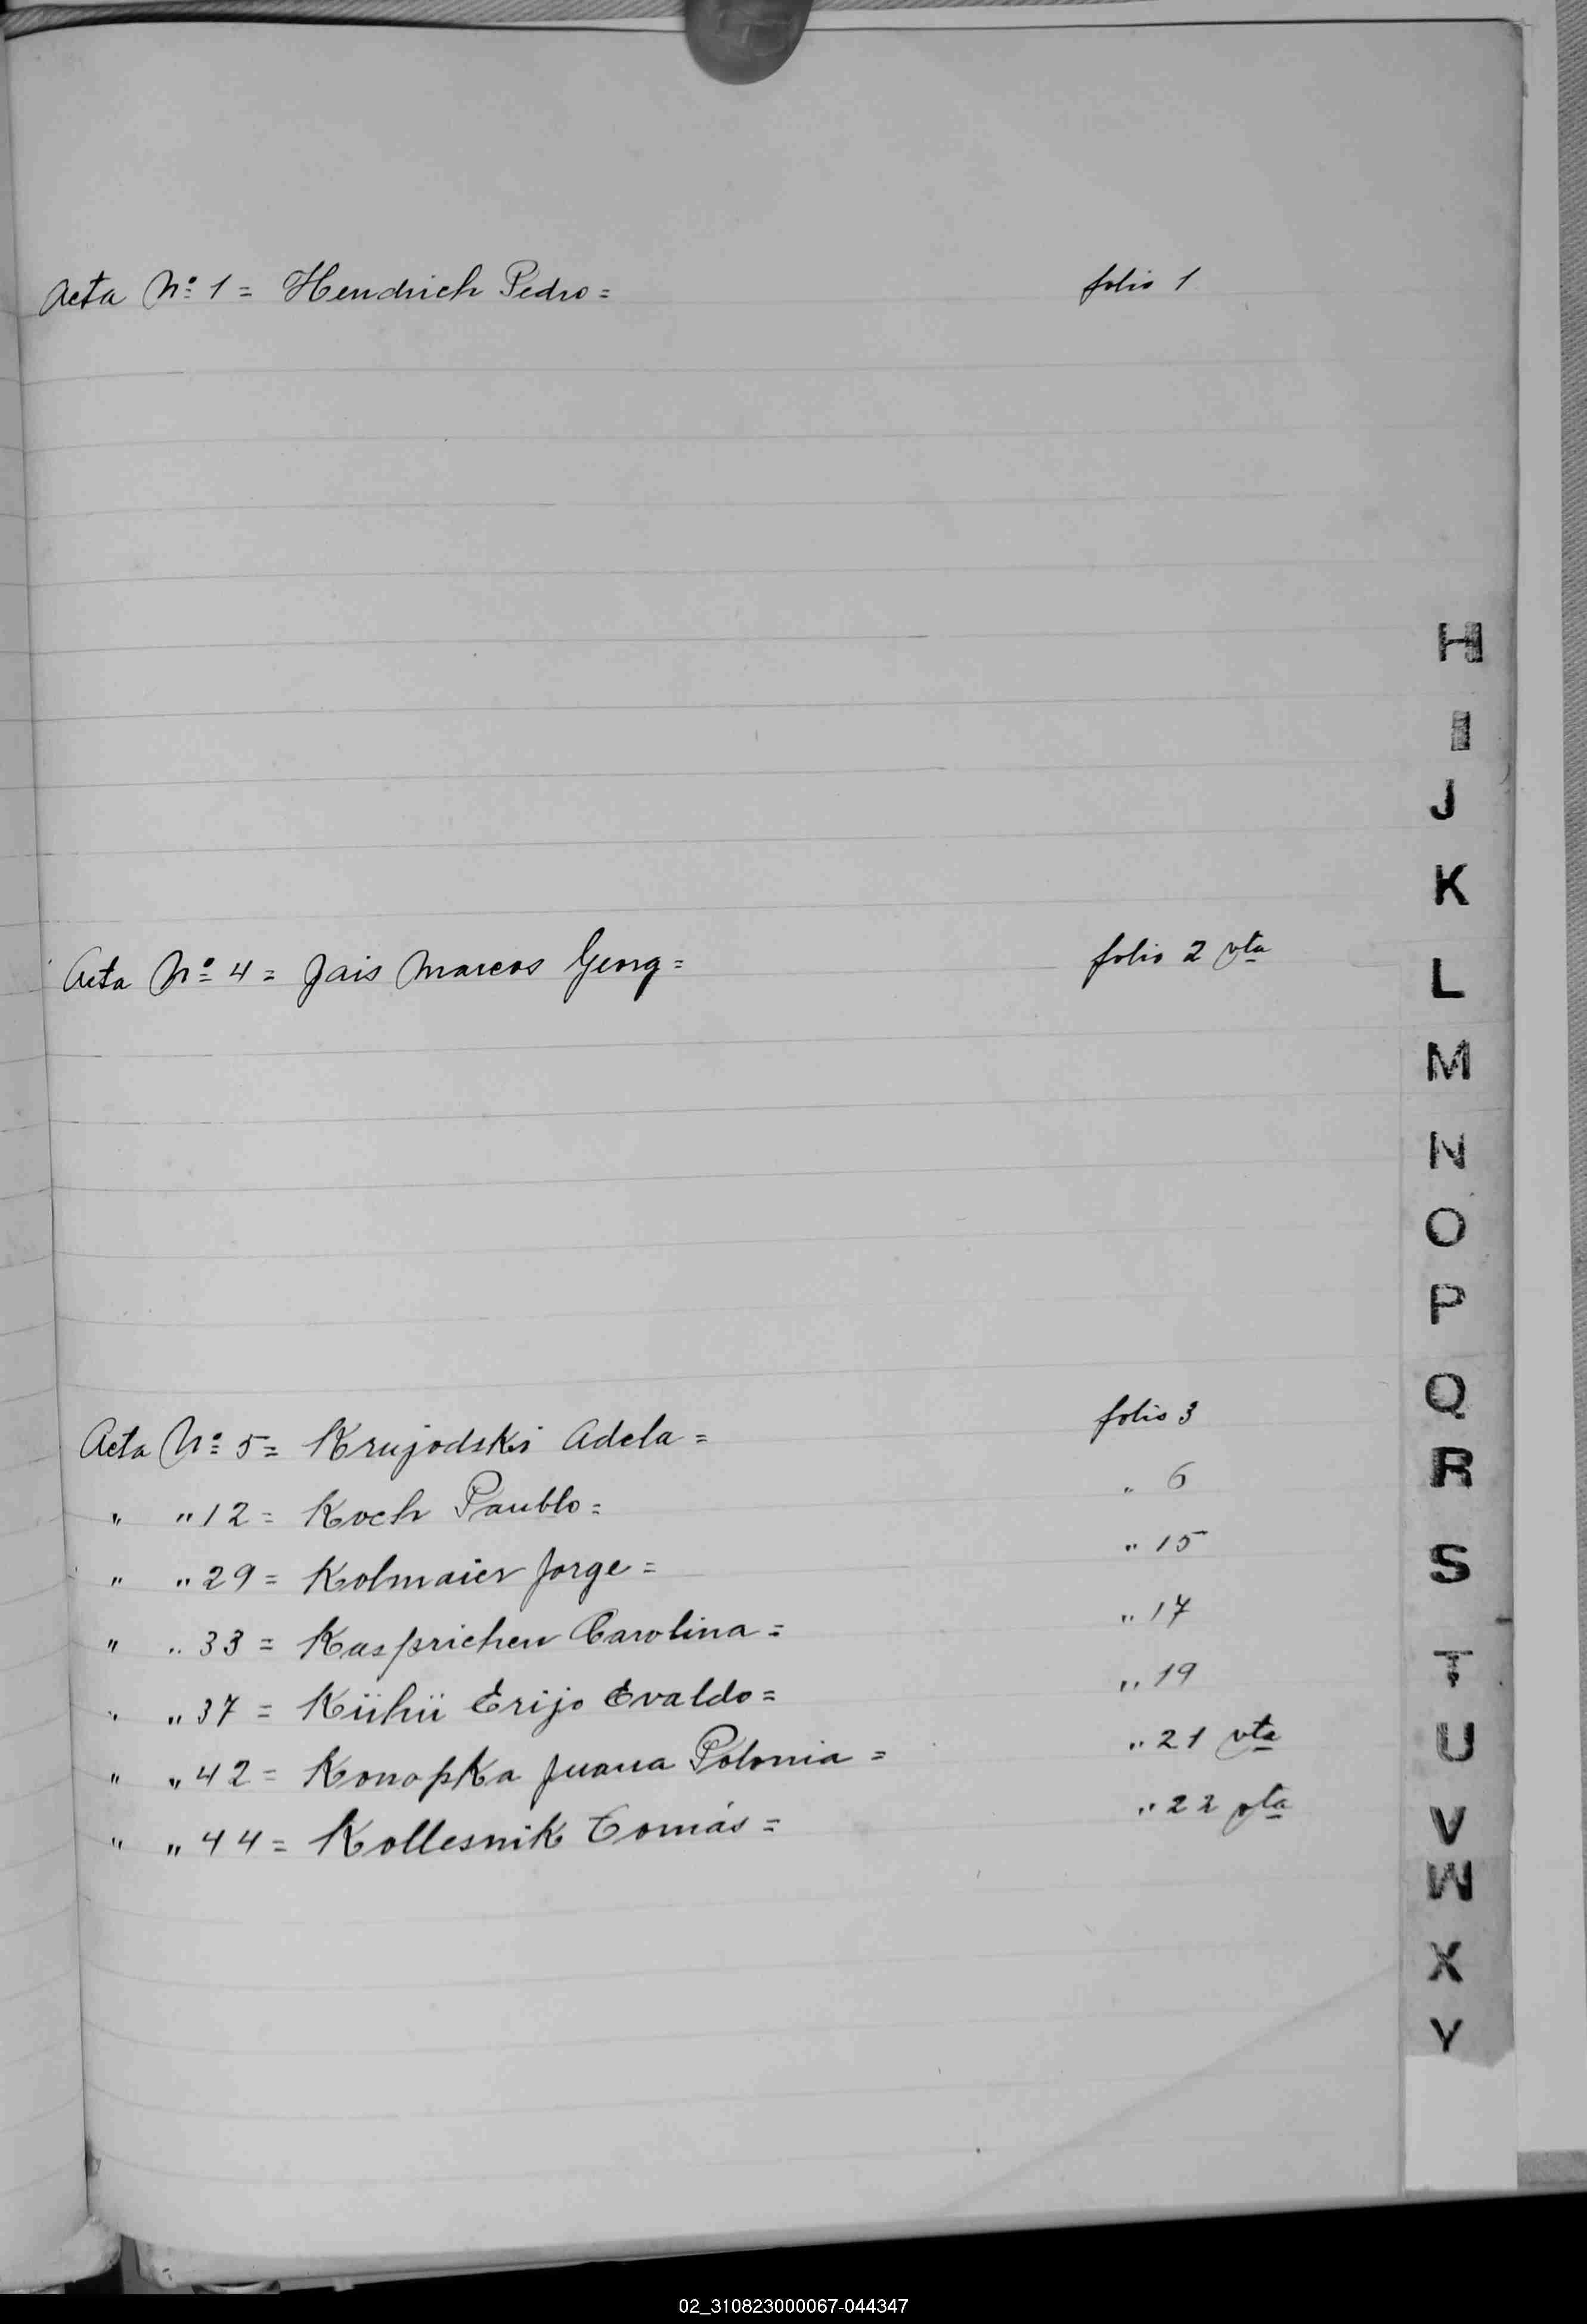 Acta Nº 1 = Hendrich Pedro = folio 1
H
I
J
K
Acta Nº 4 = Jais Marcos Georg = folio 2 vta
L
M
N
O
P
Q
Acta Nº 5 = Krujodski Adela = folio 3
R
" " 12 = Koch Paublo = " 6
" " 29 = Kolmaier Jorge = " 15
S
" " 33 = Kasprichen Carolina = " 17
T
" " 37 = Kühü Erijo Evaldo = " 19
U
" " 42 = Konopka Juana Polonia = " 21 vta
" " 44 = Kollesnik Tomás = " 22 vta
V
W
X
Y
02_310823000067-044347